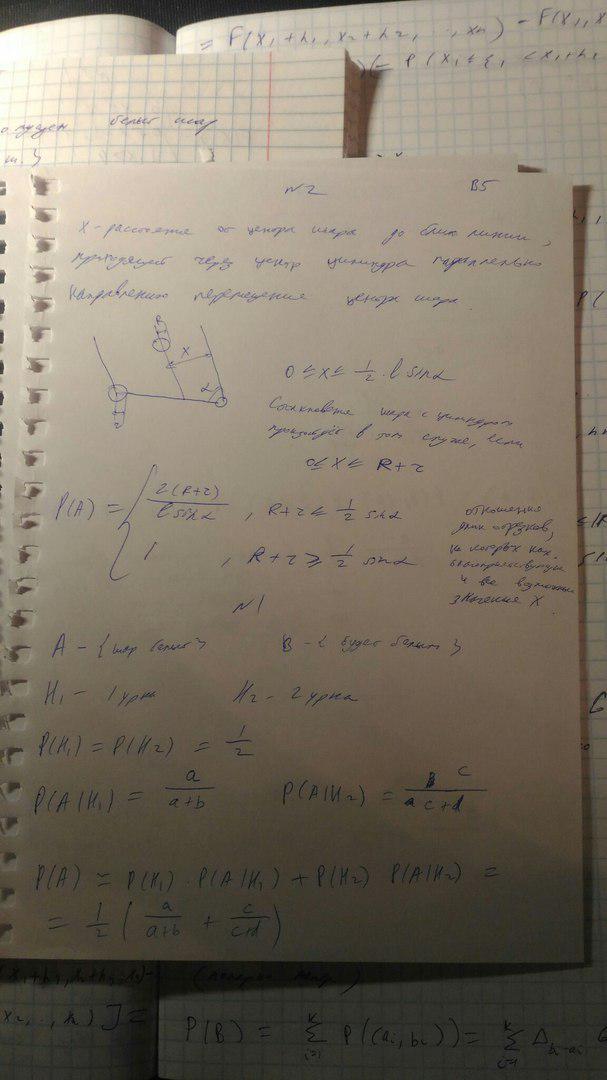 = F(x₁+h₁, x₂+h₂, ..., xₙ) - F(x₁, x
белый шар
N2 В5
X - расстояние от центра шара до ближ линии,
проходящей через центр цилиндра параллельно
направлению перемещения центра шара.
R
X
α
r
0 ≤ X ≤ 1/2 · l sinα
Столкновение шара с цилиндром
произойдёт в том случае, если
0 ≤ X ≤ R+r
P(A) = { 2(R+r) / l sinα , R+r ≤ 1/2 sinα
1 , R+r ≥ 1/2 sinα
отношение
длин отрезков,
на которых нах.
благоприятствующие
и все возможные
значения X.
N1
A - {шар белый} B - {будет белым}
H₁ - 1 урна H₂ - 2 урна
P(H₁) = P(H₂) = 1/2
P(A|H₁) = a/(a+b) P(A|H₂) = c/(c+d)
P(A) = P(H₁) · P(A|H₁) + P(H₂) P(A|H₂) =
= 1/2 ( a/(a+b) + c/(c+d) )
x₂, .., xₙ) ] =
P(B) = Σ P((aᵢ, bᵢ)) = Σ Δ